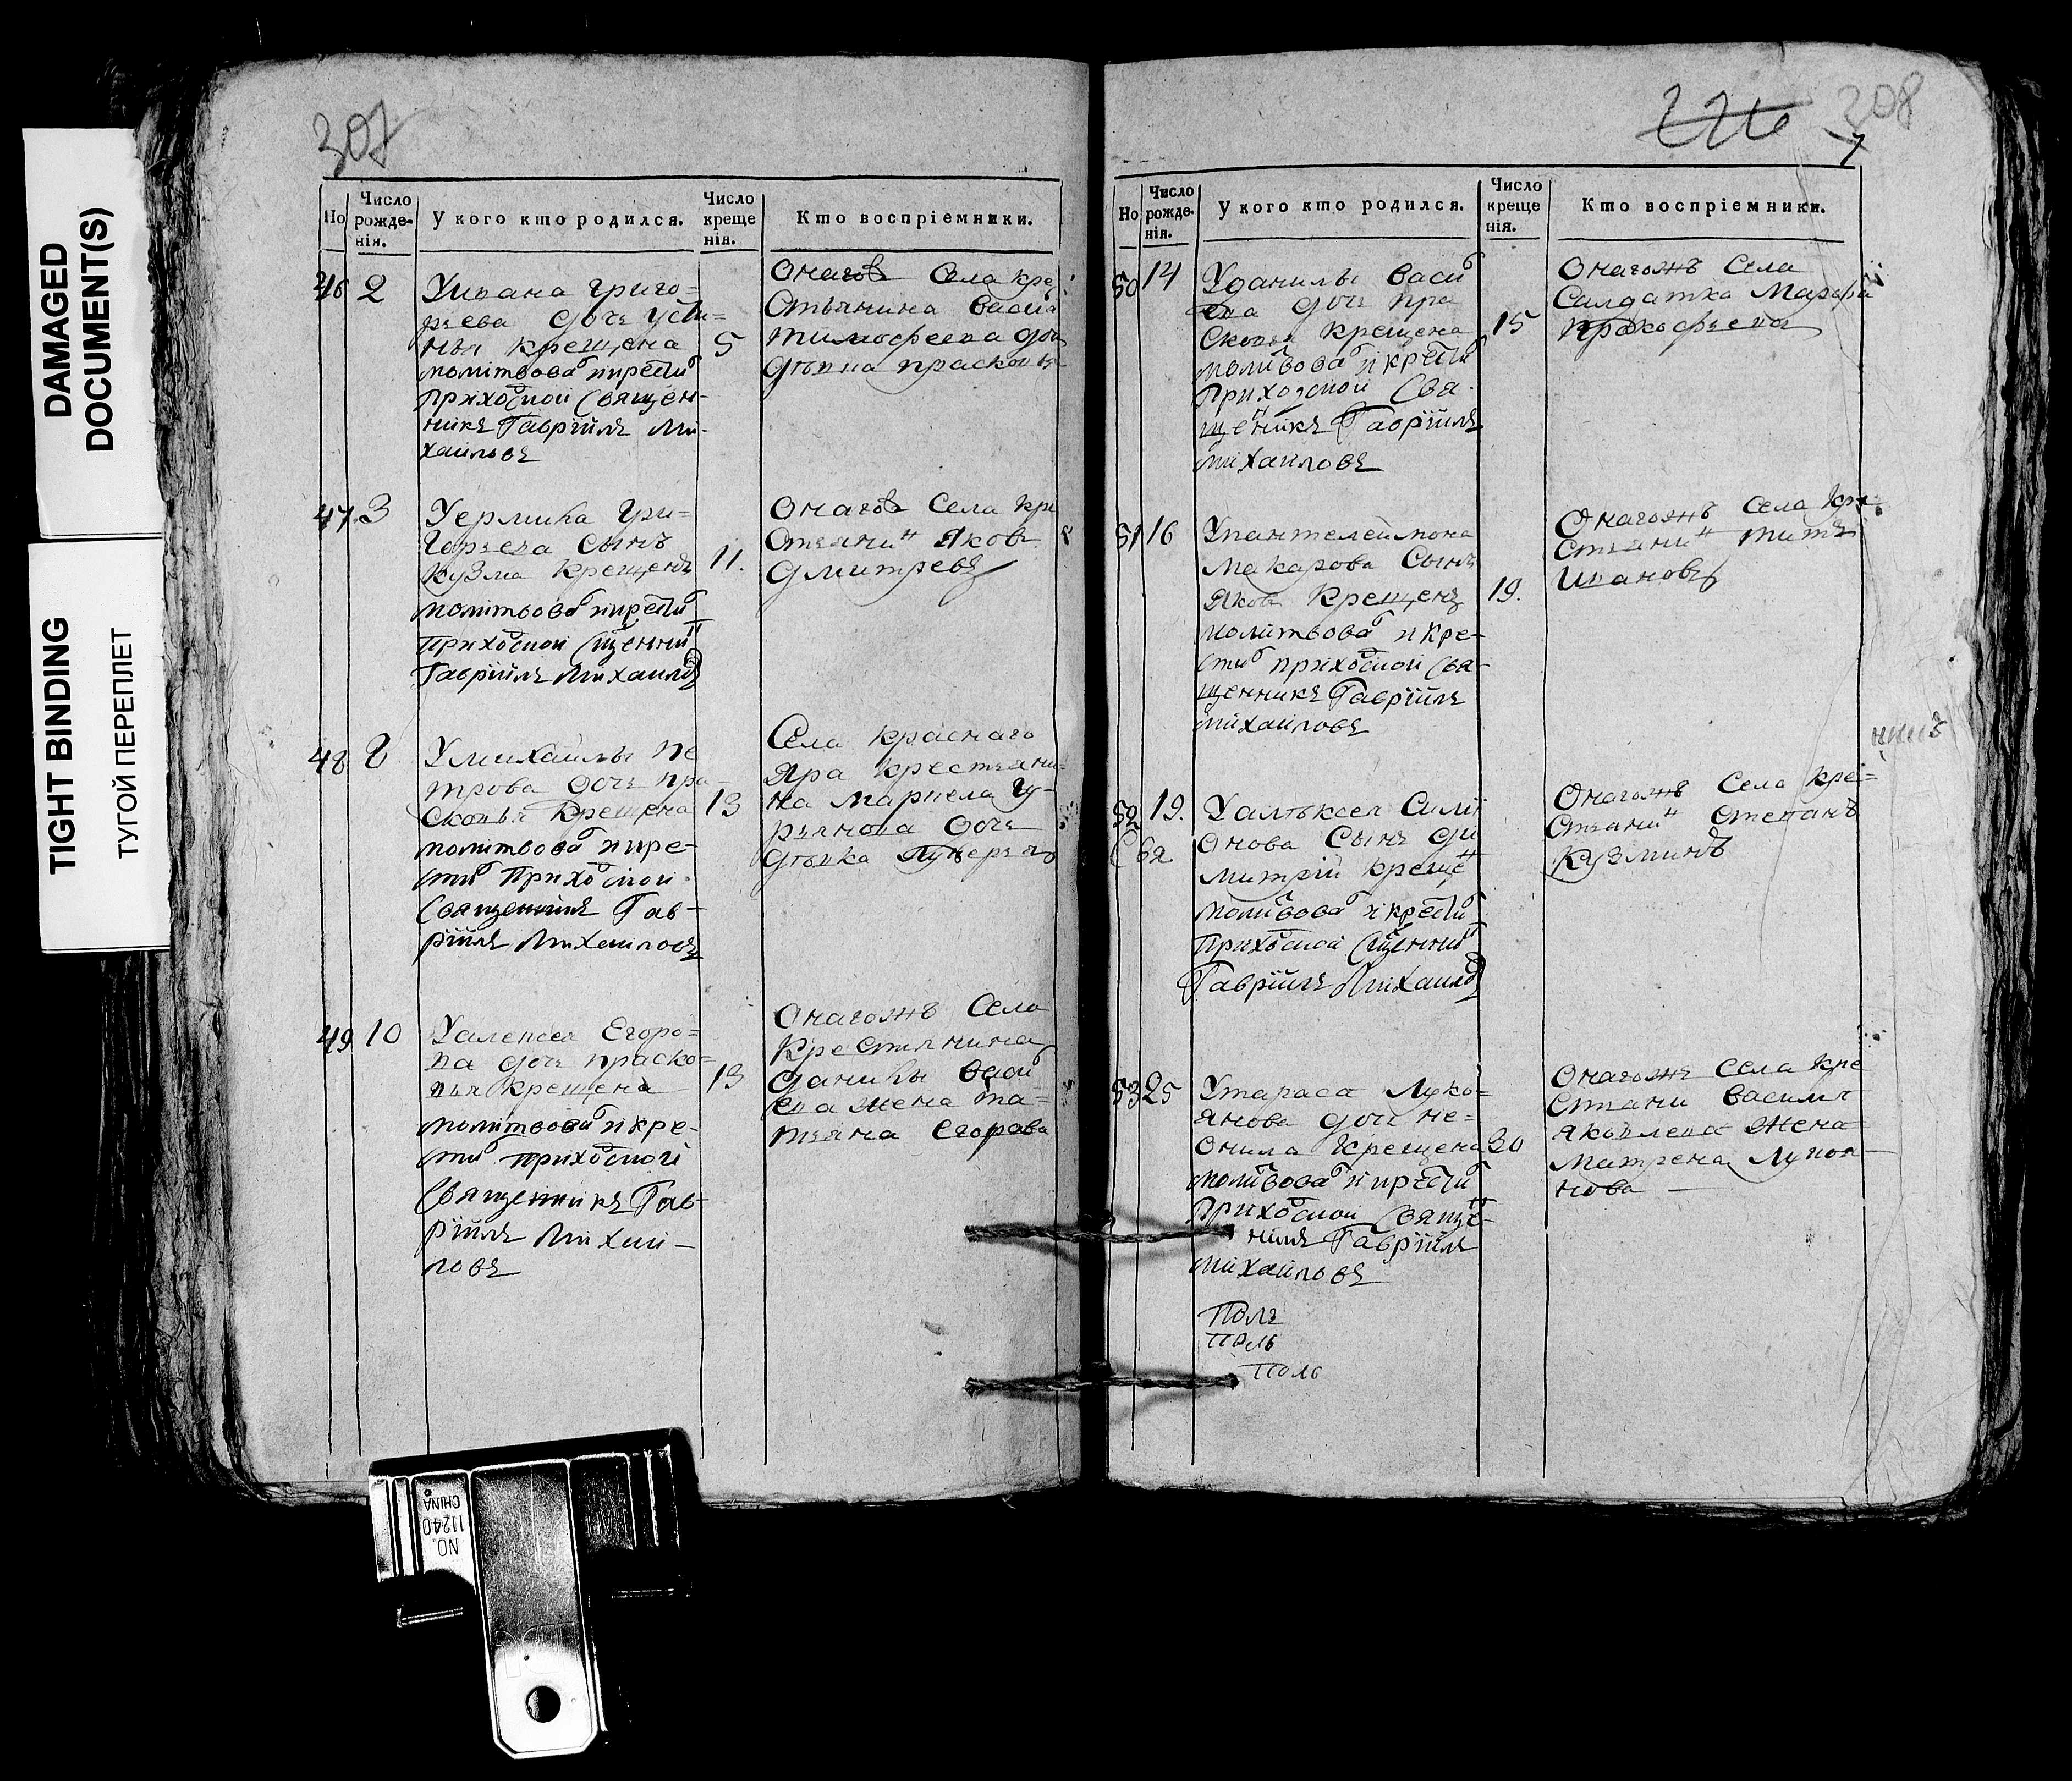 DAMAGED
DOCUMENT(S)
TIGHT BINDING
ТУГОЙ ПЕРЕПЛЕТ
307
Но
Число рожденія.
У кого кто родился.
Число крещенія.
Кто воспріемники.
46 2
Уивана Григо=
рьева дочь Усти=
нья крещена 5
молитвовал и крестил
приходской Священ-
никъ Гавріилъ Ми-
хаиловъ
Онагож Села кре
стьянина Васил
тимофеева доч
девка прасковья
47. 3
Уермила Гри=
горьева Сынъ
Кузма крещенъ 11.
молитвовал и крестил
приходской Сщенник
Гавріилъ Михаилов
Онагож Села кре
стьянин Яков
Дмитревъ
48 8
Умихаилы Пе
трова дочь пра-
сковья крещена 13
молитвовал и кре-
стил приходской
Священникъ Гав-
ріилъ Михаиловъ
Села красного
Яра крестьяни-
на Маркела Гу-
рьянова дочь
девка Лукерья
49 10
Уалексея Егоро=
ва дочь праско=
вья крещена 13
молитвовал и кре-
стил приходской
Священникъ Гав-
ріилъ Михаи-
ловъ
Онагожъ Села
Крестьянина
Данилы Васил
ева жена та=
тьяна Егорова
226 308
7
Но
Число рожденія.
У кого кто родился.
Число крещенія.
Кто воспріемники.
50 14
Уданилы Васил
ева дочь пра
сковья крещена 15
молитвовал и крестил
приходской Свя-
щенникъ Гавріилъ
михаиловъ
Онагожъ Села
Салдатка Марфа
прокофьева
51 16
Упантелеймона
Макарова Сынъ
Яков крещенъ 19.
молитвовал и кре-
стил приходской Свя-
щенникъ Гавріилъ
михаиловъ
Онагожъ Села Кре-
стьянин титъ
Ивановъ
52 19.
Уалѣксея Сими
онова Сынъ Ди
митрій крещен
молитвовал и крестил
приходской Сщенник
Гавріилъ Михаилов
Онагожъ Села кре=
стьянин Степанъ
Кузминъ
53 25
Утараса Луко=
янова дочь не=
онила крещена 30
молитвовал и крестил
приходской Священ-
никъ Гавріилъ
михаиловъ
Онагожъ Села Кре
стьяни Василия
яковлева Жена
Матрена Лукоя-
нова
Полъ
поль
поль
NO.
11240
CHINA